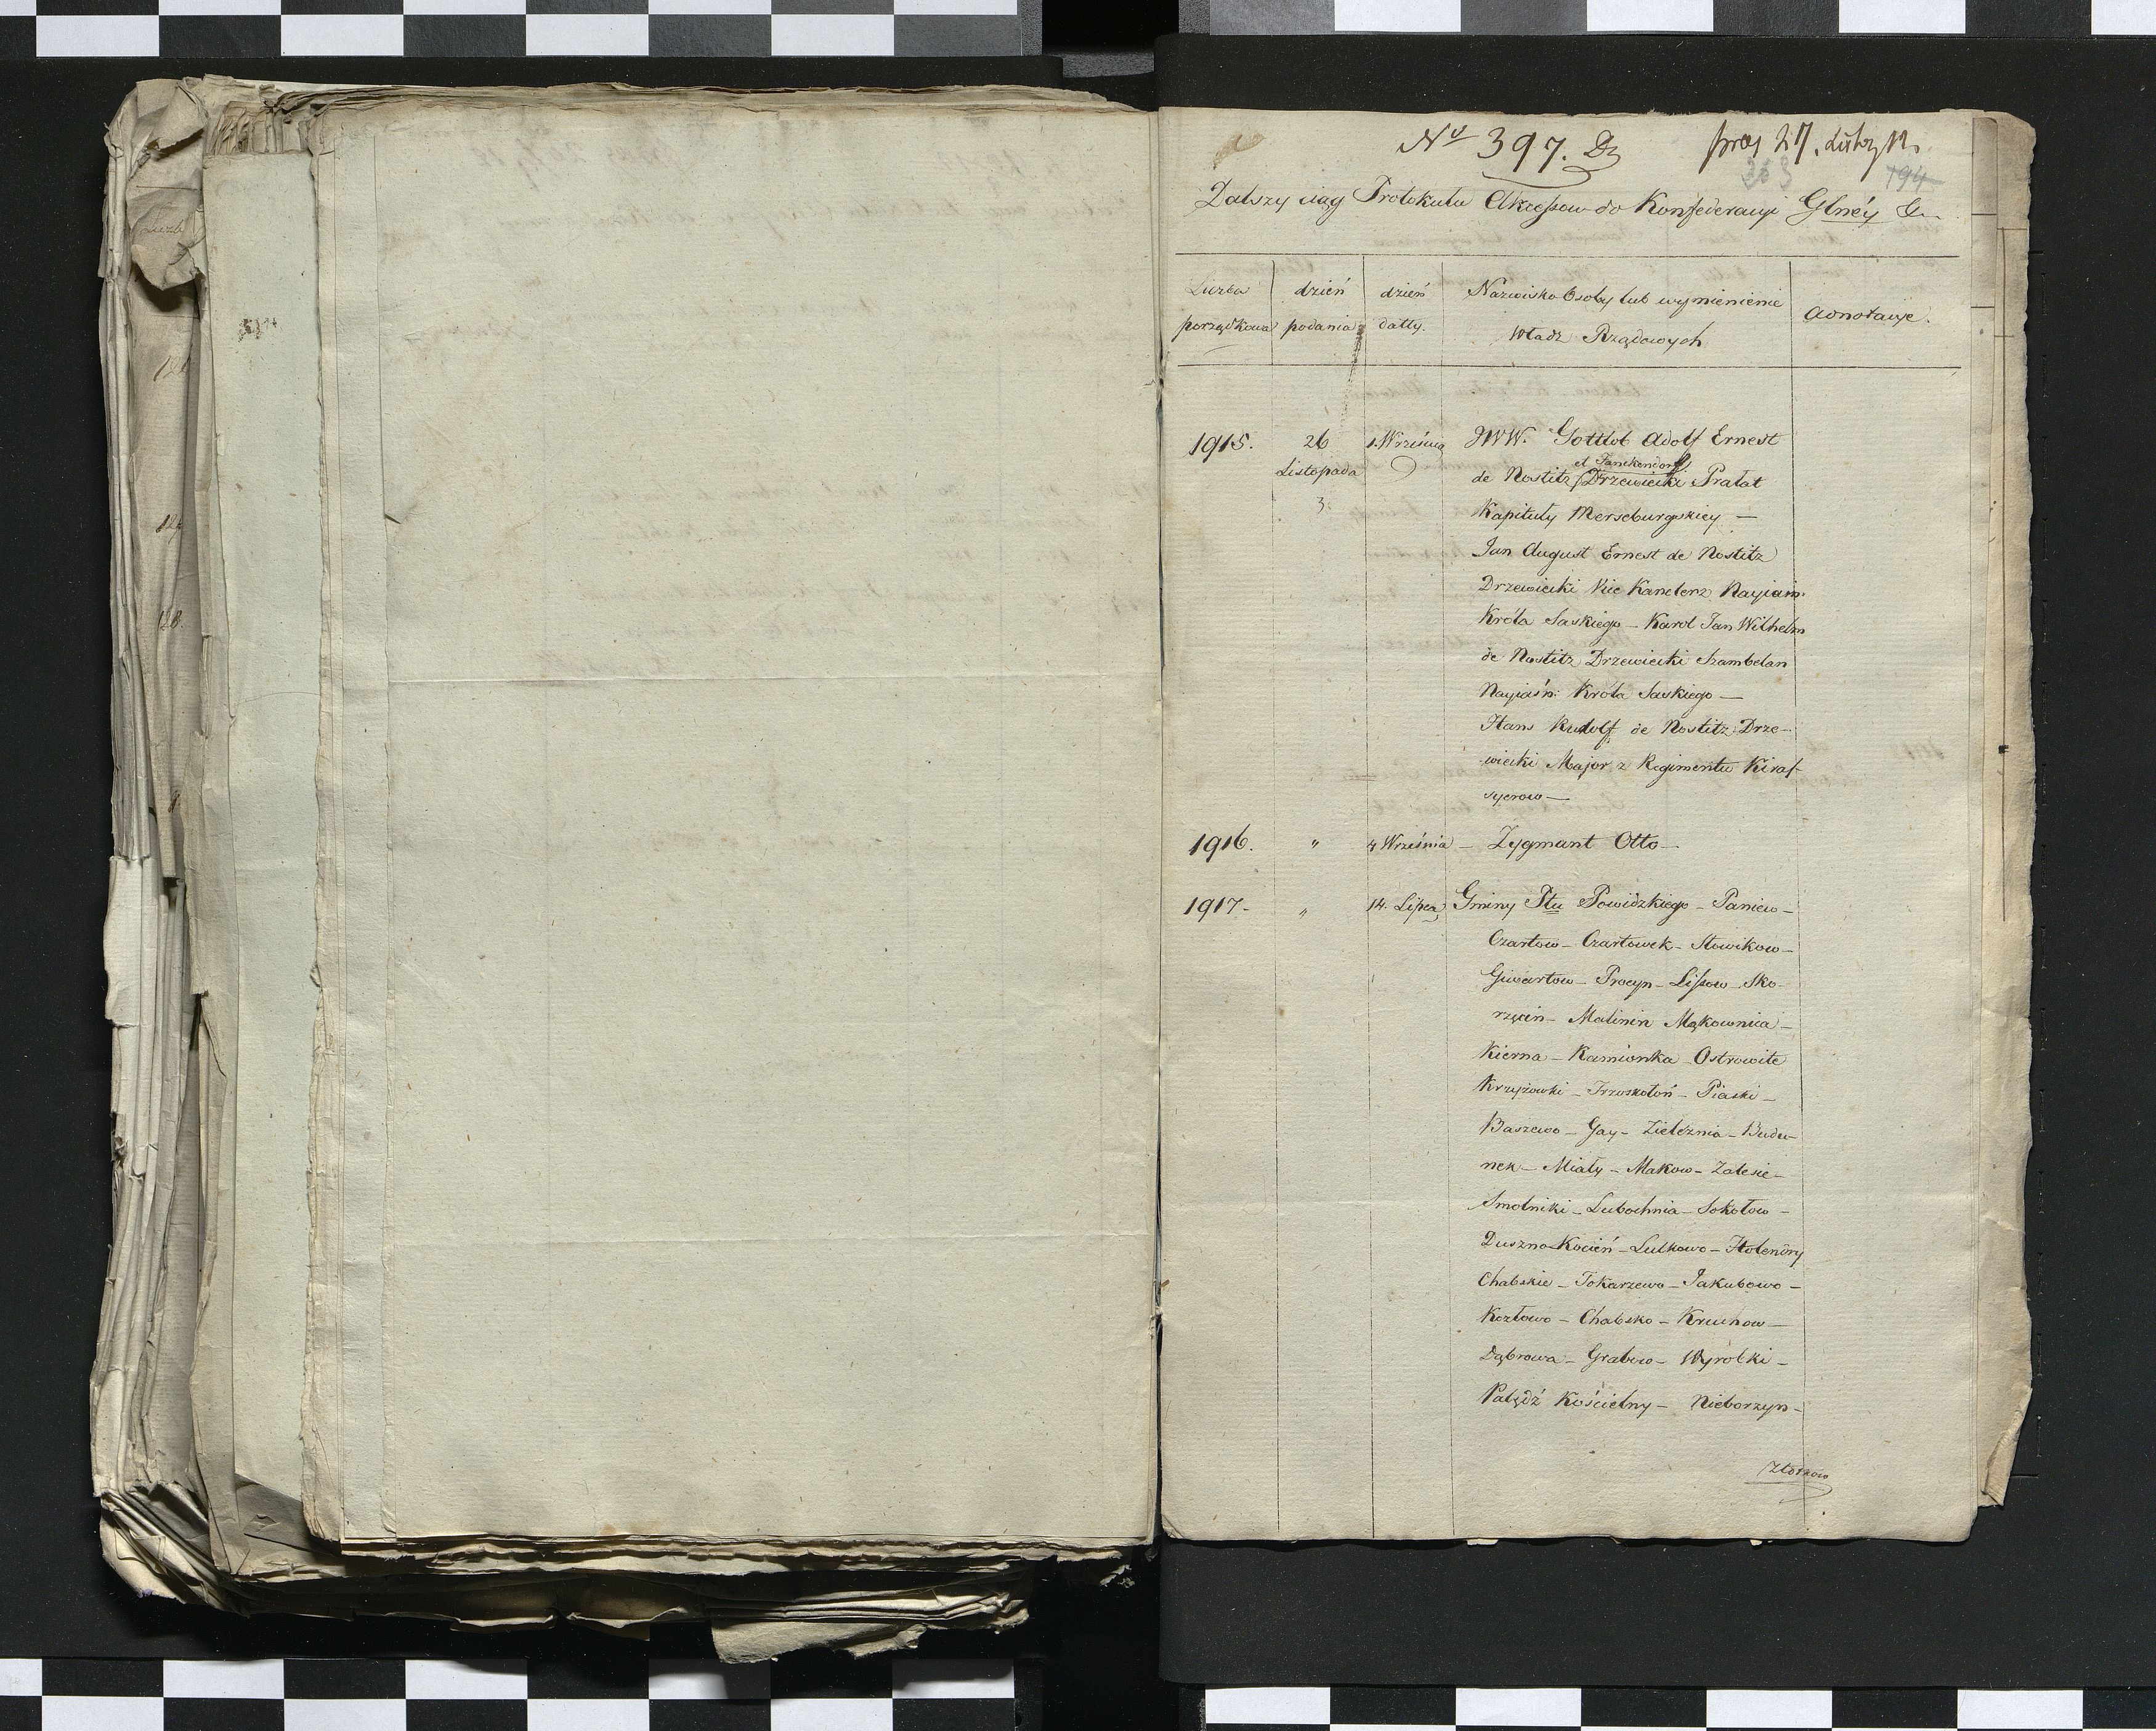 Nº 397. Dz
prez 27. Lutego 12.
363
194
Dalszy ciąg Protokułu Akcessow do Konfederacyi Glnéy &
Liczba porządkowa
dzień podania
dzień datty.
Nazwisko Osoby lub wymienienie Władz Rządowych
Adnotacye.
1915.
26 Listopada
1. Września
JWW. Gottlob Adolf Ernest
et Janckendorf
de Nostitz Drzewiecki Prałat
Kapituły Merseburgskiey —
Jan August Ernest de Nostitz
Drzewiecki Vice Kanclerz Nayiaśn:
Króla Saskiego — Karol Jan Wilhelm
de Nostitz Drzewiecki Szambelan
Nayiaśn: Króla Saskiego —
Hans Rudolf de Nostitz Drze-
wiecki Major z Regimentu Kiras-
syerow —
1916. " 4 Września — Zygmunt Otto —
1917 - " 14. Lipca Gminy Ptu Powidzkiego - Paniew -
Czartow - Czartowek - Słowikow -
Giwartow - Procyn - Lissow - Sko-
rzęcin - Malinin Mąkownica -
Kierna - Kamionka Ostrowite
Krzyżowki - Trzuskołoń - Piaski -
Baszewo - Gay - Zieleznia - Budu-
nek - Miaty - Makow - Zalesie -
Smolniki - Lubochnia - Sokołow -
Duszno Kocień - Lulkowo - Holendry
Chabskie - Tokarzewo - Jakubowo -
Kozłowo - Chabsko - Kruchow -
Dąbrowa - Grabow - Wyrobki -
Palędź Kościelny - Nieborzyn -